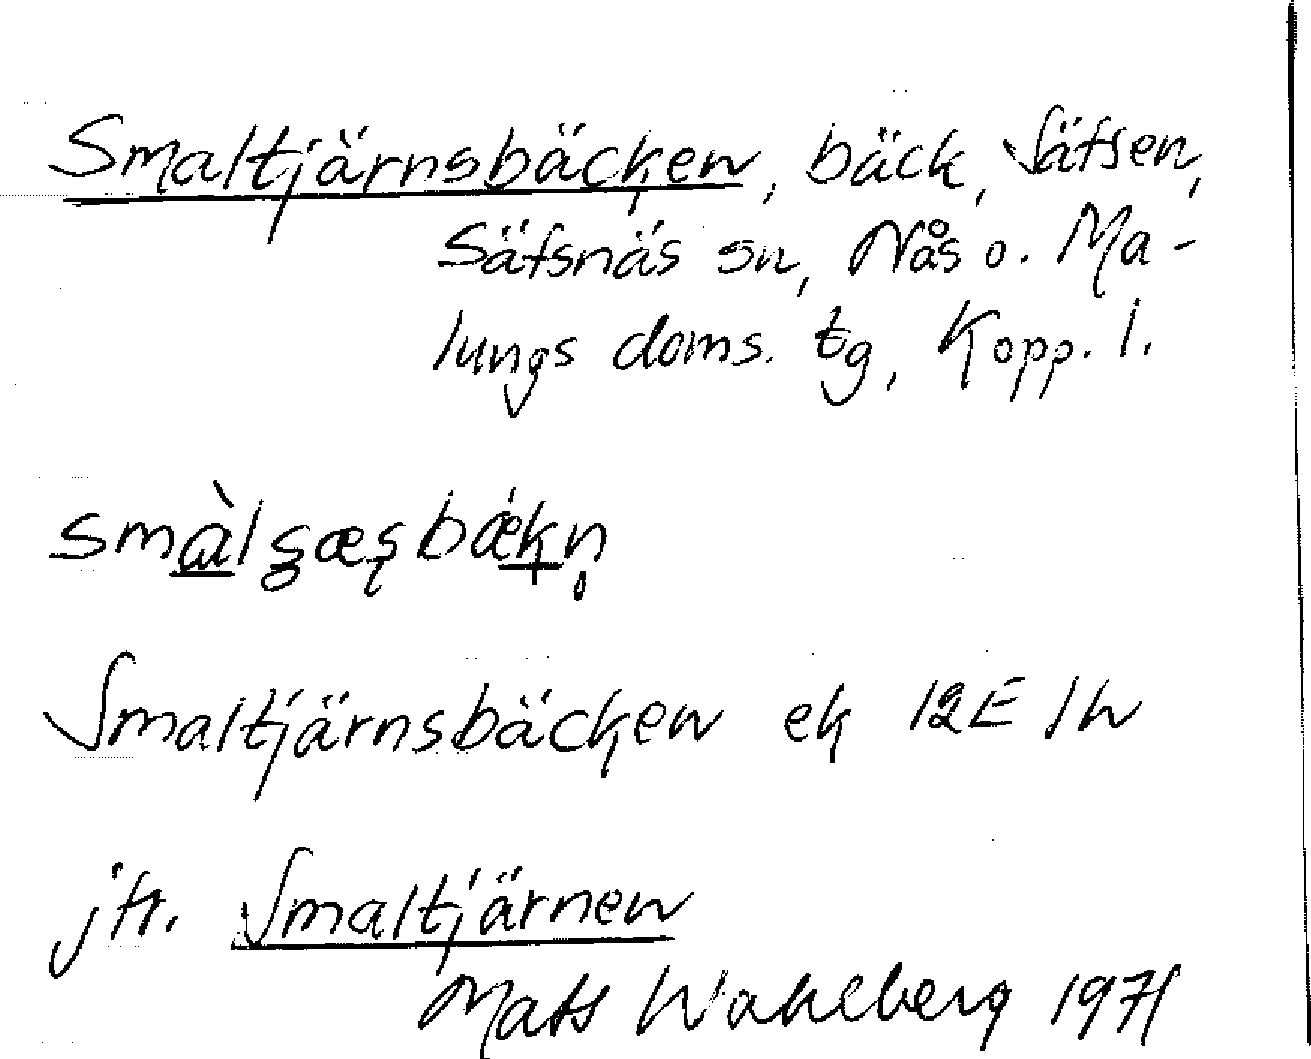 Smaltjärnsbäcken, bäck, Säfsen,
Säfsnäs sn, Nås o. Ma-
lungs doms. tg, Kopp. l.
smàlʂæʂbækn̥
Smaltjärnsbäcken ek 12E 1h
jfr. Smaltjärnen
Mats Wahlberg 1971